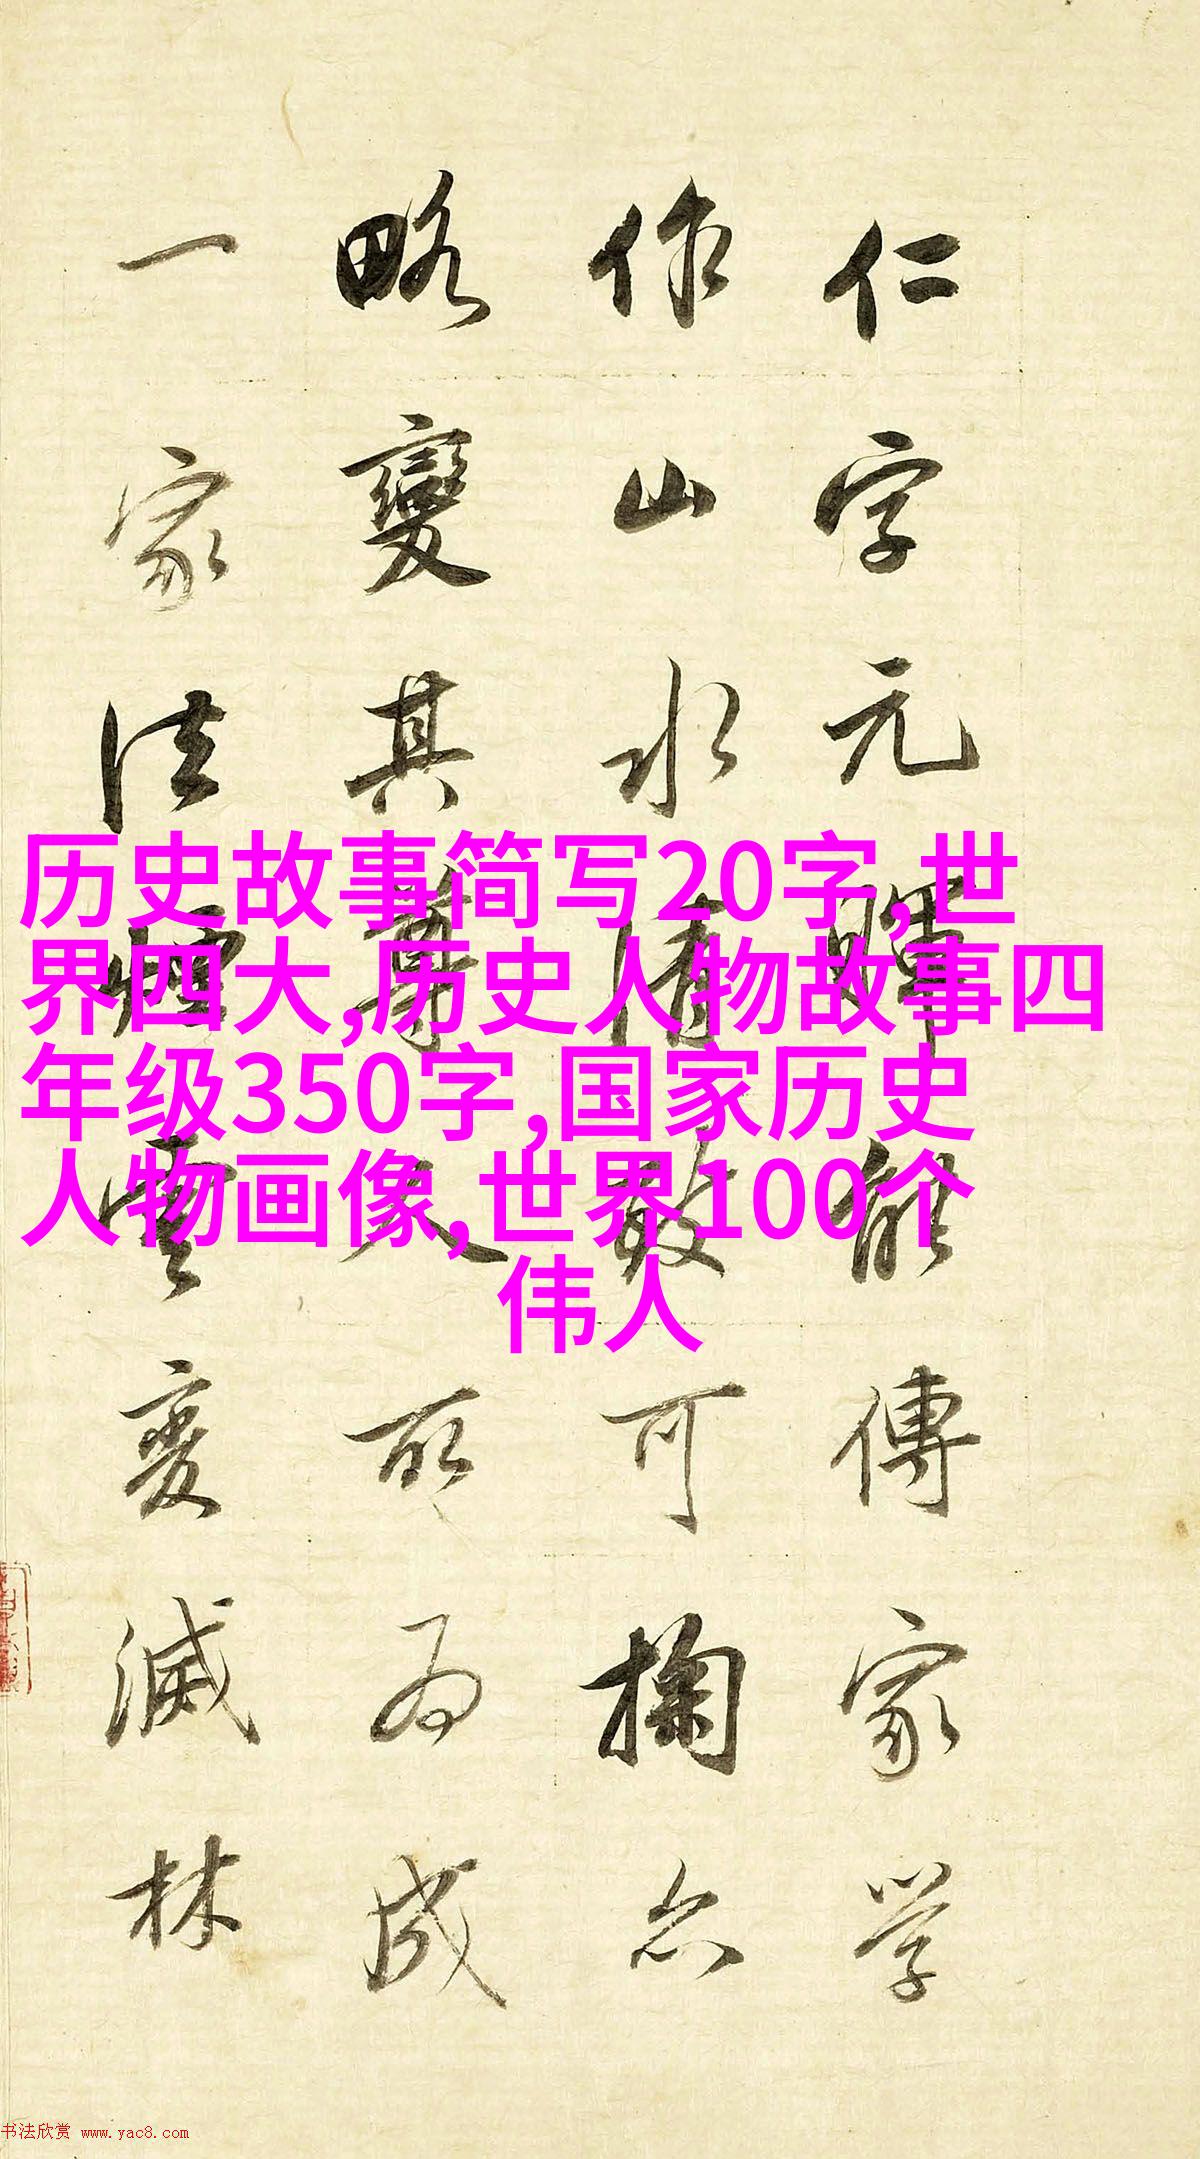 仁字元暉能傳家學
作山水清致可掬亦
略變其尊人所為成
一家法煙雲變滅林
历史故事简写20字,世
界四大,历史人物故事四
年级350字,国家历史
人物画像,世界100个
伟人
书法欣赏 www.yac8.com